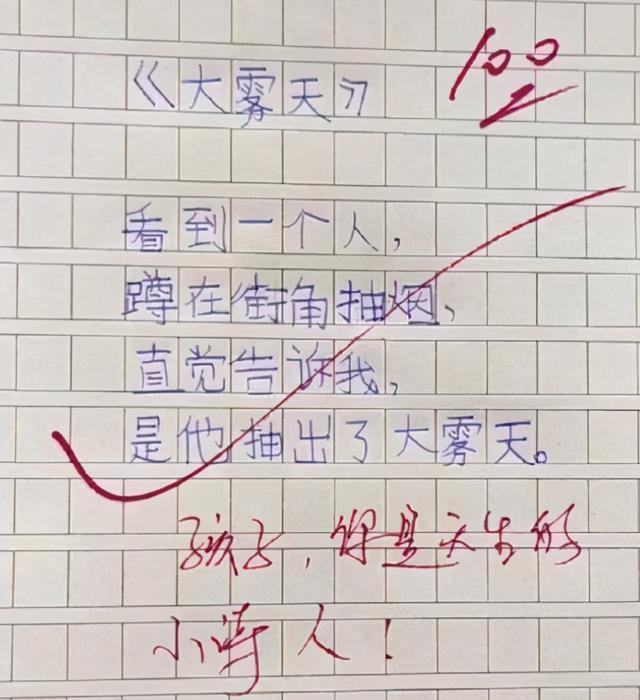 100
《大雾天》
看到一个人，
蹲在街角抽烟、
直觉告诉我，
是他抽出了大雾天。
孩子，你是天生的
小诗人！